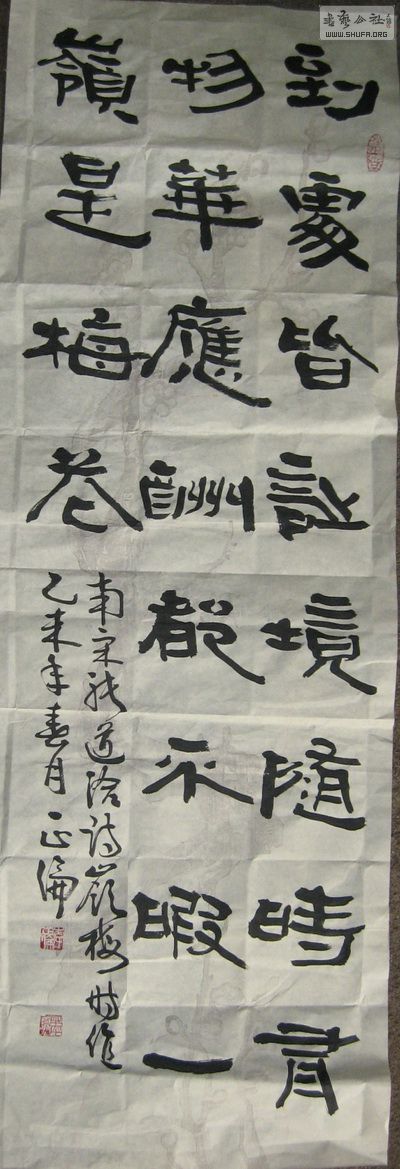 書藝公社
WWW.SHUFA.ORG
到處皆詩境隨時有
物華應酬都不暇一
嶺是梅花
南宋張道洽詩嶺梅時值
乙未年春月正倫